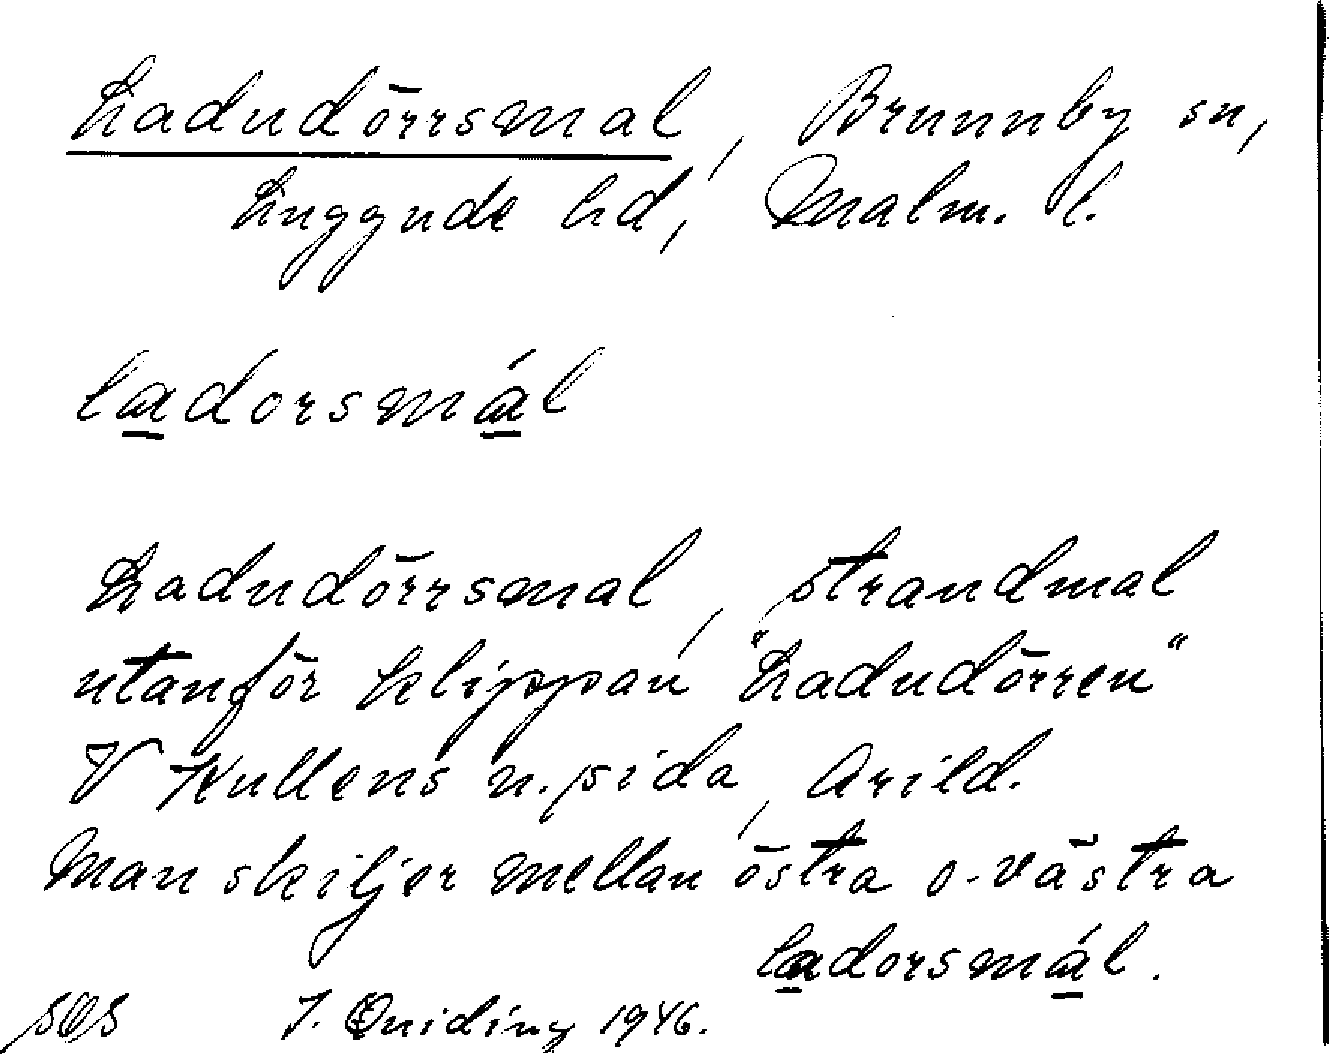 Ladudörrsmal, Brunnby sn,
Luggude hd, Malm. l.
ladorsmál
Ladudörrsmal, strandmal
utanför klippan "Ladudörren"
V Kullens n. sida, Arild.
Man skiljer mellan östra o. västra
ladorsmál.
SOS J. Quiding 1946.